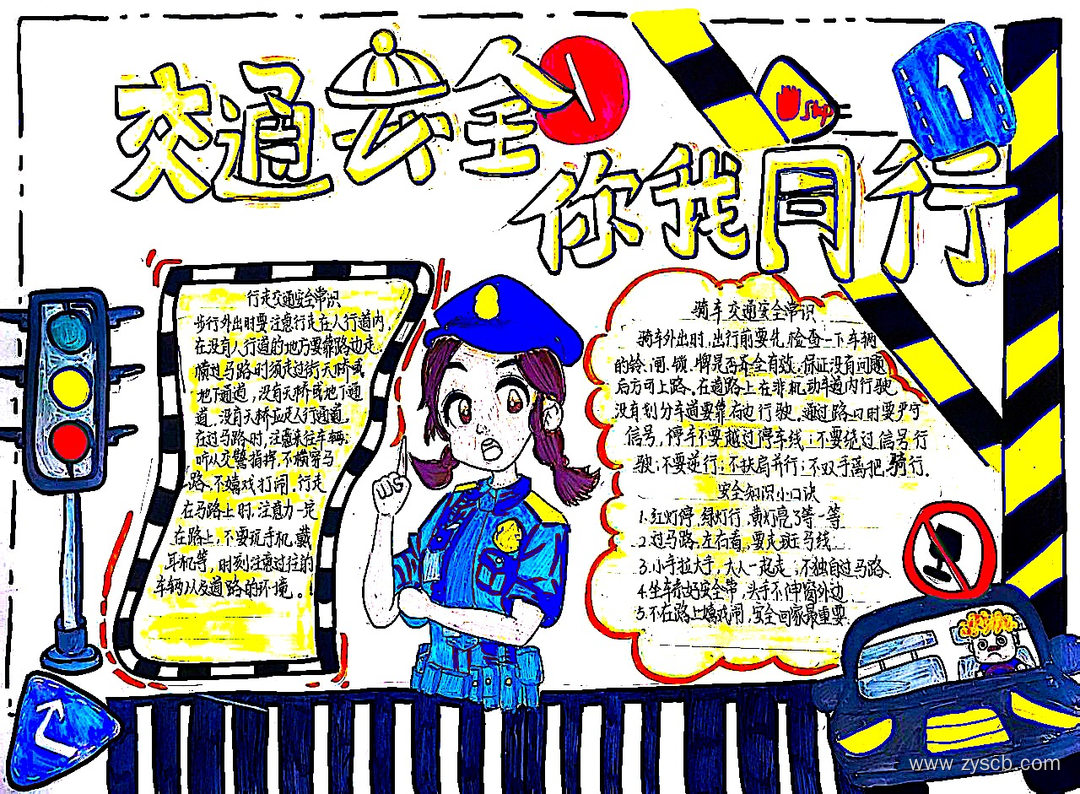 交通安全
你我同行
Stop
行走交通安全常识
步行外出时要注意行走在人行道内,
在没有人行道的地方要靠路边走.
横过马路时须走过街天桥或
地下通道,没有天桥或地下通
道,没有天桥应走人行通道.
在过马路时,注意来往车辆;
听从交警指挥,不横穿马
路、不嬉戏打闹.行走
在马路上时,注意力一定
在路上,不要玩手机,戴
耳机等,时刻注意过往的
车辆以及道路的环境。!
骑车交通安全常识
骑车外出时,出行前要先检查一下车辆
的铃、闸、锁、牌是否齐全有效,保证没有问题
后方可上路.在道路上在非机动车道内行驶
没有划分车道要靠右边行驶.通过路口时要严守
信号,停车不要越过停车线;不要绕过信号行
驶;不要逆行;不扶肩并行;不双手离把,骑行.
安全知识小口诀
1.红灯停,绿灯行,黄灯亮了等一等
2.过马路,左右看,要走斑马线
3.小手拉大手,大人一起走,不独自过马路
4.坐车系好安全带,头手不伸窗外边
5.不在路上嬉戏闹,安全回家最重要.
www.zyscb.com